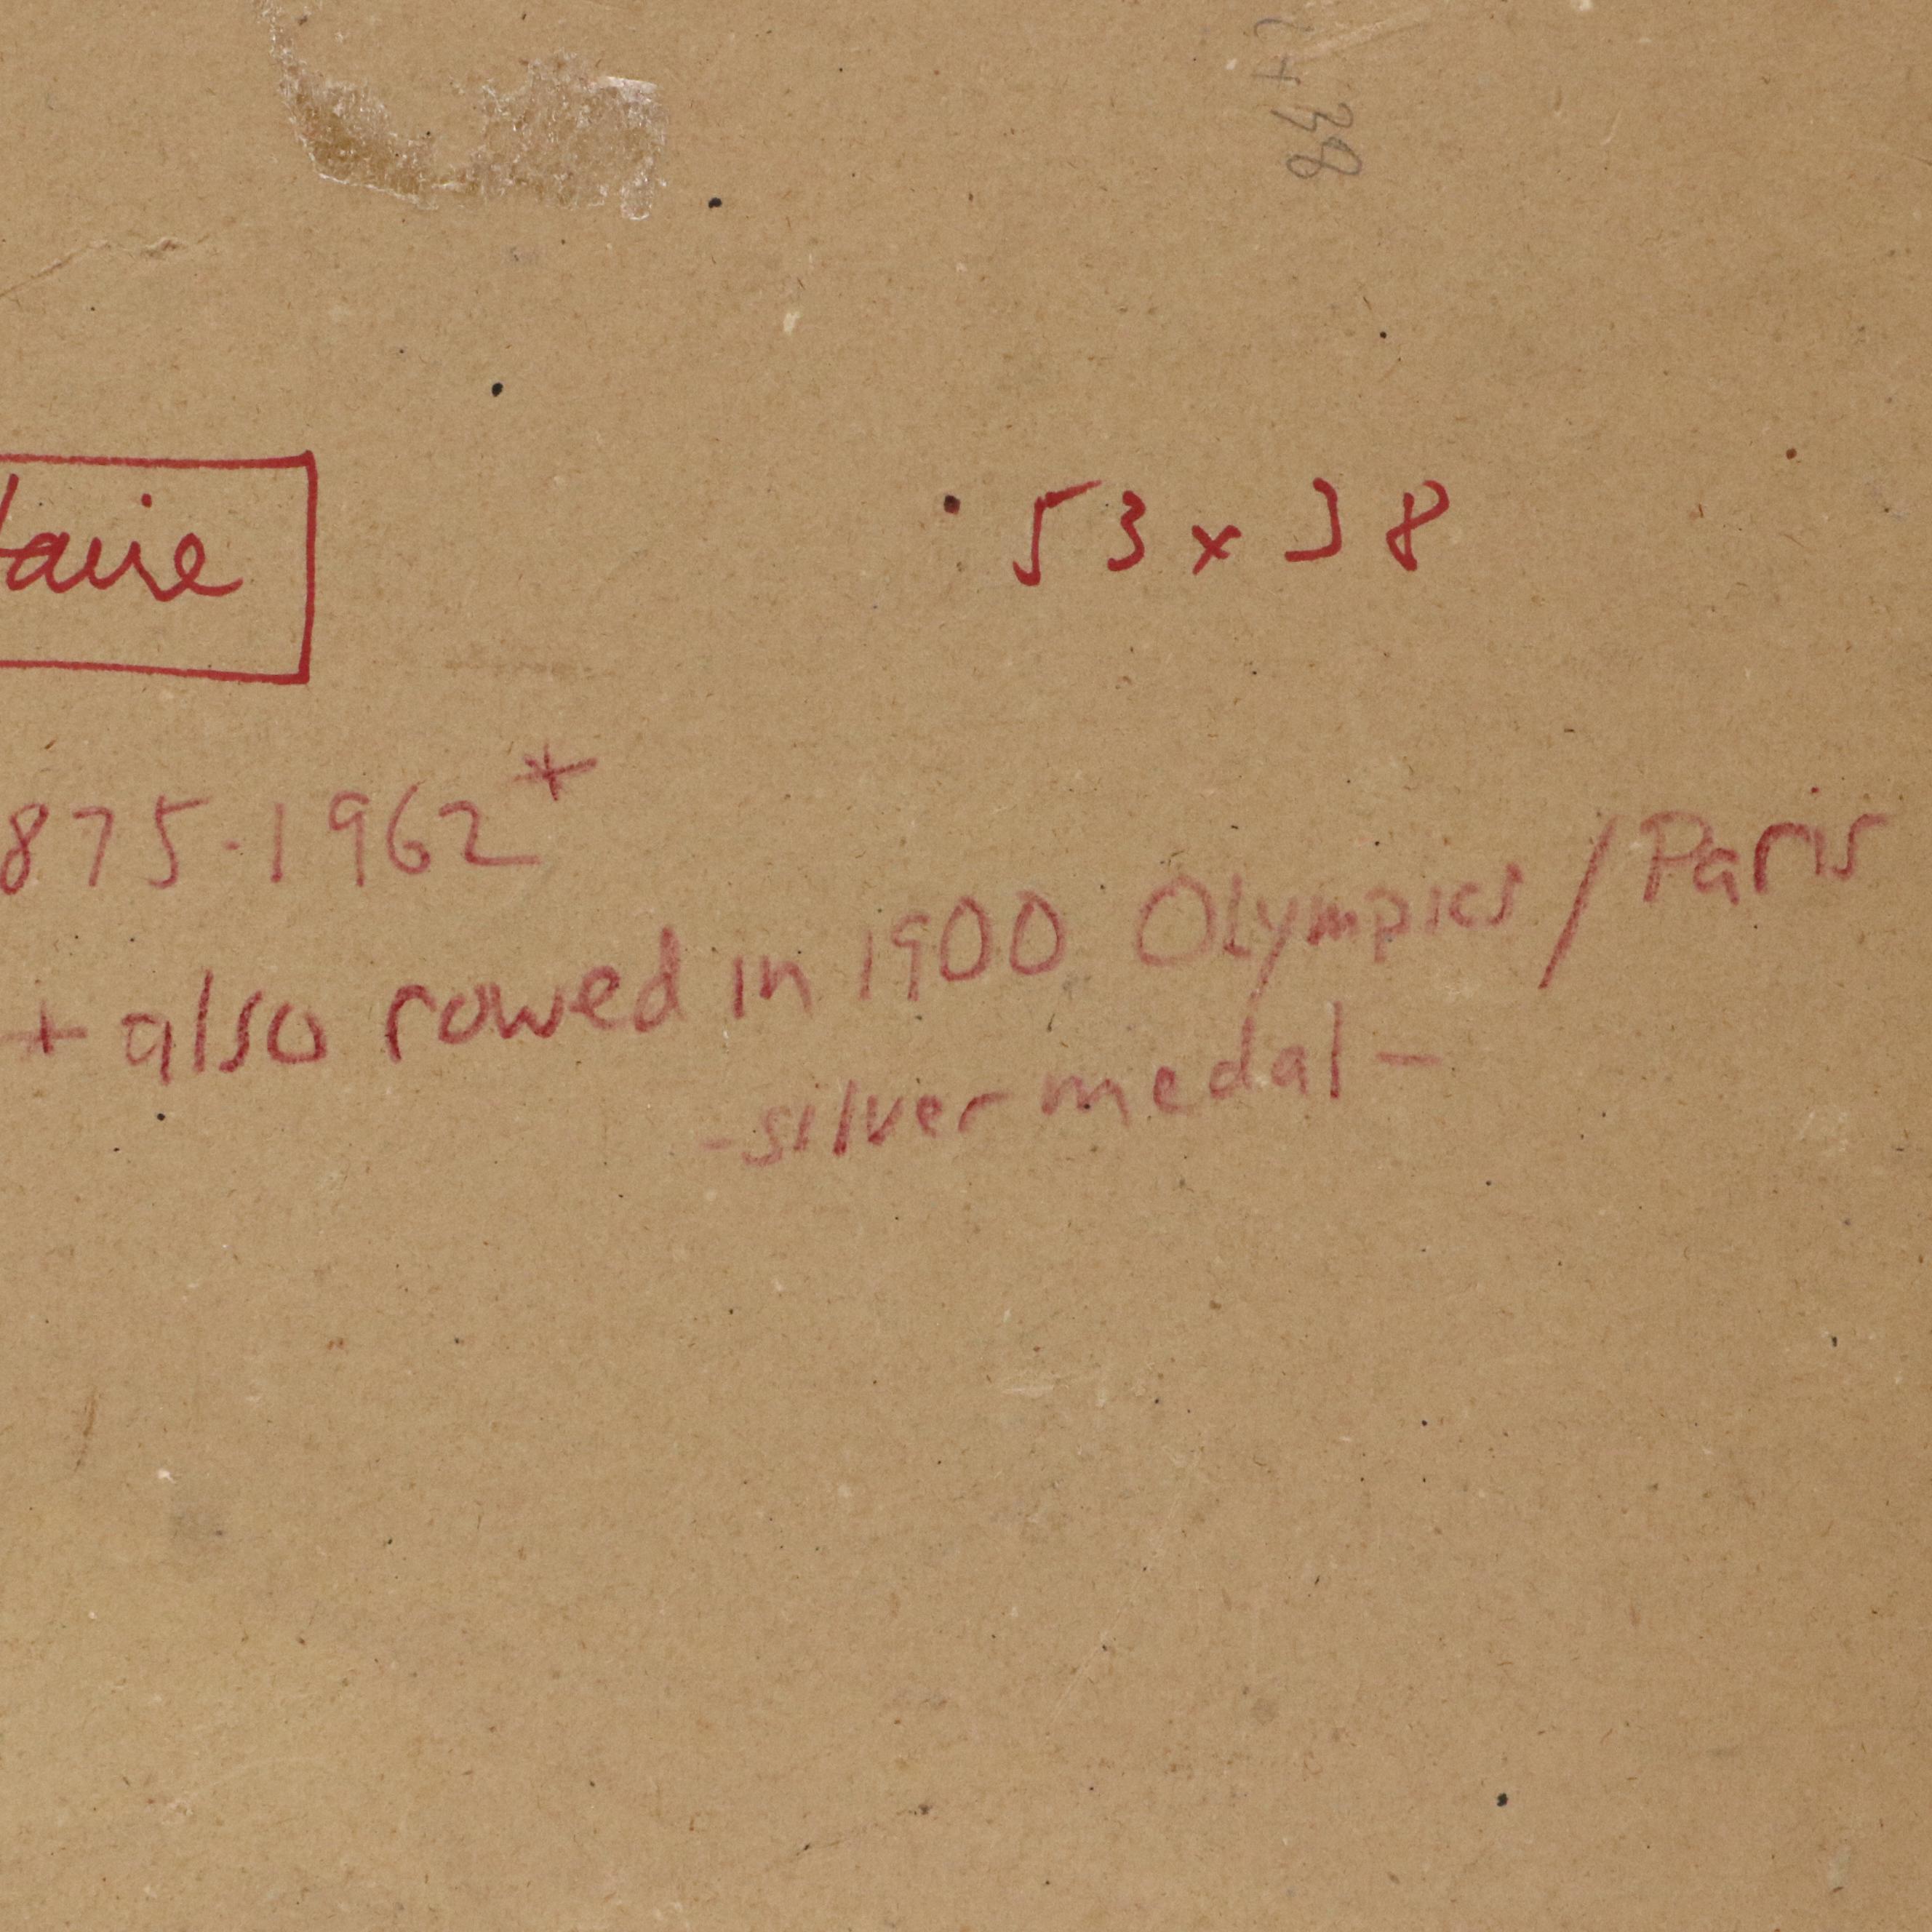 38
taire
53 x 38
875-1962*
+ also rowed in 1900 Olympics / Paris
- silver medal -